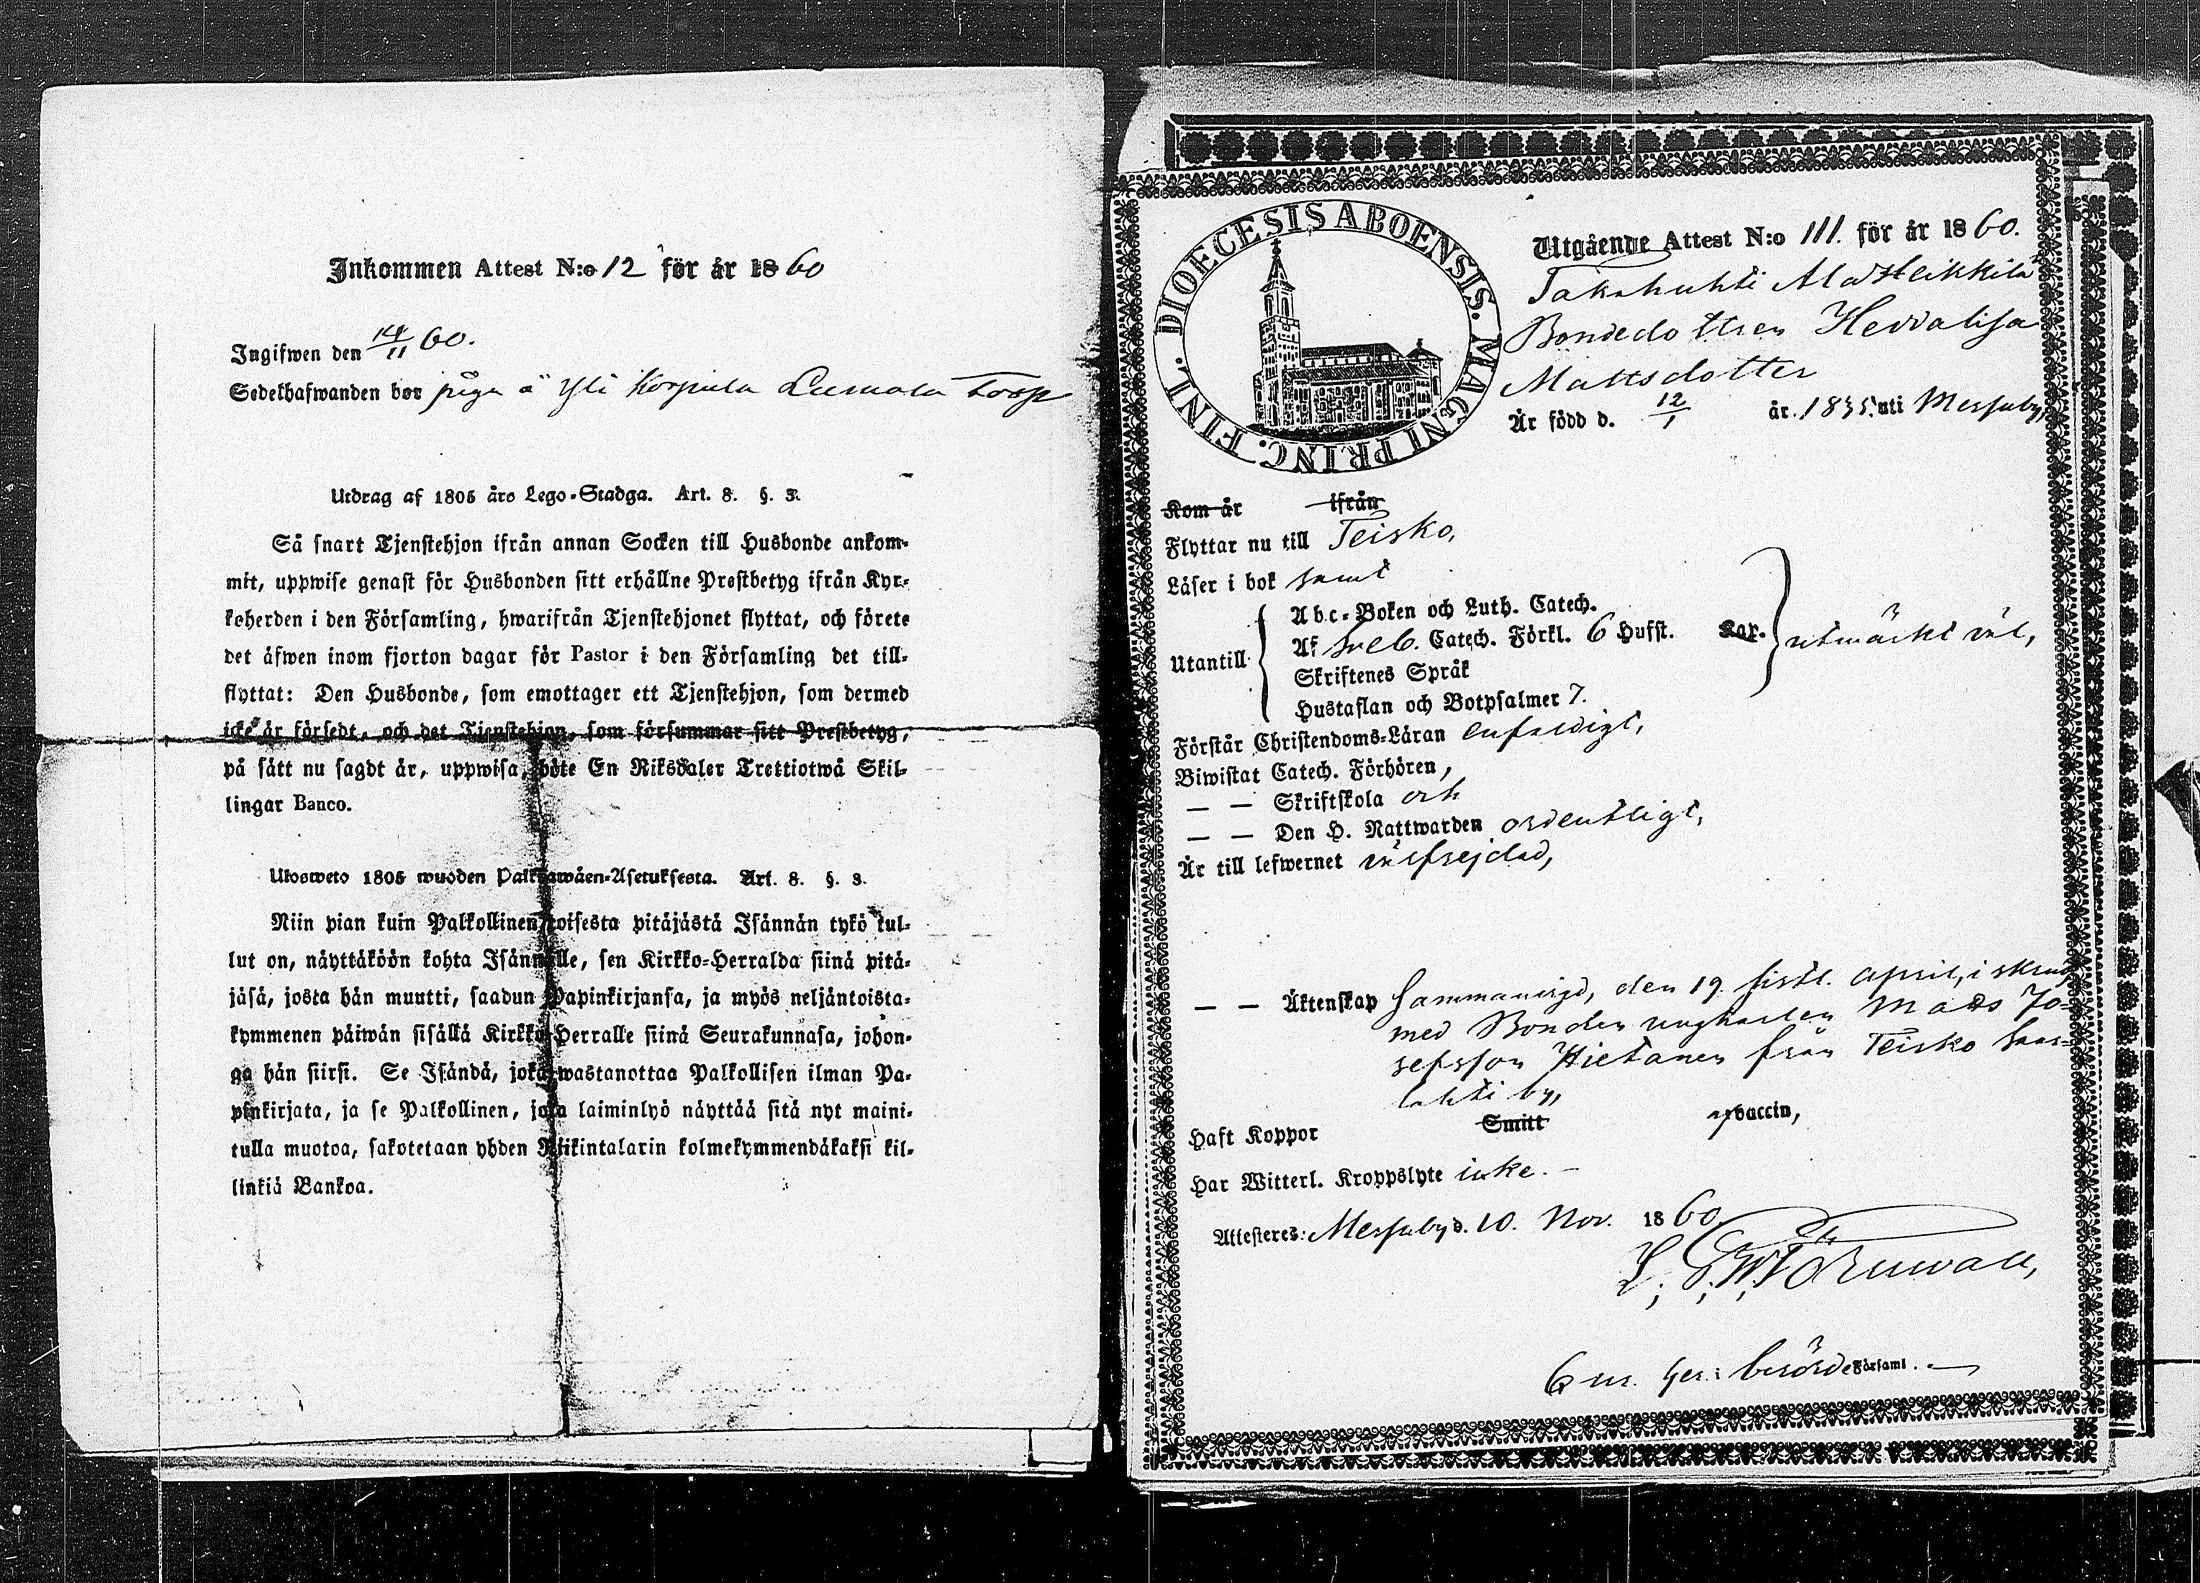 Inkommen Attest N:o 12 för år 1860
Ingifwen den 14/11 60.
Sedelhafwanden bor piga å Yli Korpula Lumala Torp
Utdrag af 1805 års Lego-Stadga. Art. 8. §. 3.
Så snart Tjenstehjon ifrån annan Socken till Husbonde ankom-
mit, uppwise genast för Husbonden sitt erhållne Prestbetyg ifrån Kyr-
koherden i den Församling, hwarifrån Tjenstehjonet flyttat, och förete
det äfwen inom fjorton dagar för Pastor i den Församling det till-
flyttat: Den Husbonde, som emottager ett Tjenstehjon, som dermed
icke är försedt, och det Tjenstehjon, som försummar sitt Prestbetyg,
på sätt nu sagdt är, uppwisa, böte En Riksdaler Trettiotwå Skil-
lingar Banco.
Ulosweto 1805 wuoden Palkkawäen-Asetuksesta. Art. 8. §. 3.
Niin pian kuin Palkollinen toisesta pitäjästä Isännän tykö tul-
lut on, näyttäköön kohta Isännälle, sen Kirkko-Herralda siinä pitä-
jäsä, josta hän muutti, saadun Papinkirjansa, ja myös neljäntoista-
kymmenen päiwän sisällä Kirkko-Herralle siinä Seurakunnasa, johon-
ga hän siirsi. Se Isändä, joka wastanottaa Palkollisen ilman Pa-
pinkirjata, ja se Palkollinen, joka laiminlyö näyttää sitä nyt maini-
tulla muotoa, sakotetaan yhden Riikintalarin kolmekymmendäkaksi kil-
linkiä Bankoa.
DIOECESIS ABOENSIS. MAGNI PRINC. FINL.
Utgående Attest N:o 111. för år 1860.
Takahuhti Alasteikkilä
Bondedottren Heddalisa
Mattsdotter
Är född d. 12/1 år 1835 uti Messuby,
Kom år ifrån
Flyttar nu till Teisko,
Läser i bok samt
Utantill
Abc-Boken och Luth. Catech.
Af Sveb. Catech. Förkl. 6 Hufst. Kap. utmärkt väl,
Skriftenes Språk
Hustaflan och Botpsalmer 7.
Förstår Christendoms-Läran enfaldigt,
Biwistat Catech. Förhören,
— — Skriftskola och
— — Den H. Nattwarden ordentligt,
Är till lefwernet välfrejdad,
— — Äktenskap sammanvigd, den 19 sistl. April, i skrud
med Bonden ungkarlen Mats Jo-
sefsson Hietanen från Teisko Saar-
lahti by,
Haft Koppor Smitt vaccin,
Har Witterl. Kroppslyte icke. —
Attesteres: Messuby d. 10. Nov. 1860
Församl. —